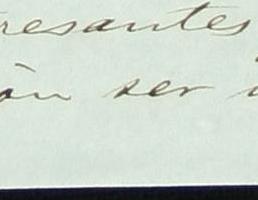 resantes
òn ser